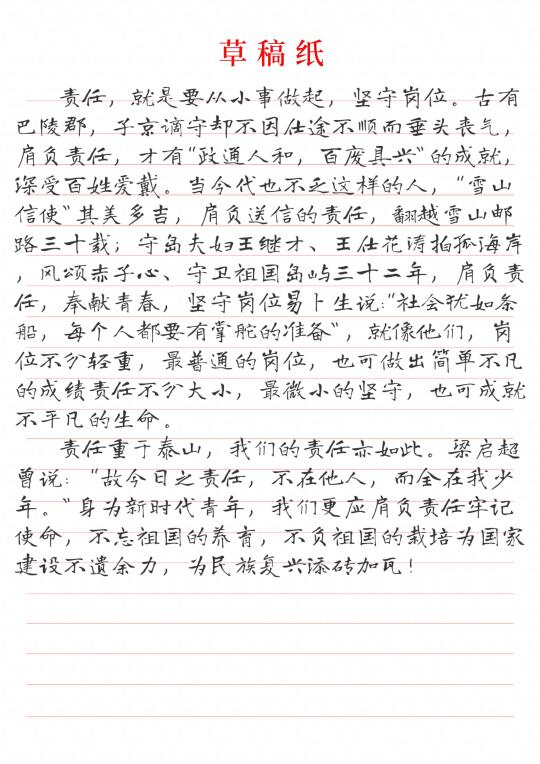 草稿纸
责任，就是要从小事做起，坚守岗位。古有
巴陵郡，子京谪守却不因仕途不顺而垂头丧气，
肩负责任，才有"政通人和，百废具兴"的成就，
深受百姓爱戴。当今代也不乏这样的人，"雪山
信使"其美多吉，肩负送信的责任，翻越雪山邮
路三十载；守岛夫妇王继才、王仕花涛拍孤海岸
，风颂赤子心、守卫祖国岛屿三十二年，肩负责
任，奉献青春，坚守岗位易卜生说："社会犹如条
船，每个人都要有掌舵的准备"，就像他们，岗
位不分轻重，最普通的岗位，也可做出简单不凡
的成绩责任不分大小，最微小的坚守，也可成就
不平凡的生命。
责任重于泰山，我们的责任亦如此。梁启超
曾说："故今日之责任，不在他人，而全在我少
年。"身为新时代青年，我们更应肩负责任牢记
使命，不忘祖国的养育，不负祖国的栽培为国家
建设不遗余力，为民族复兴添砖加瓦！